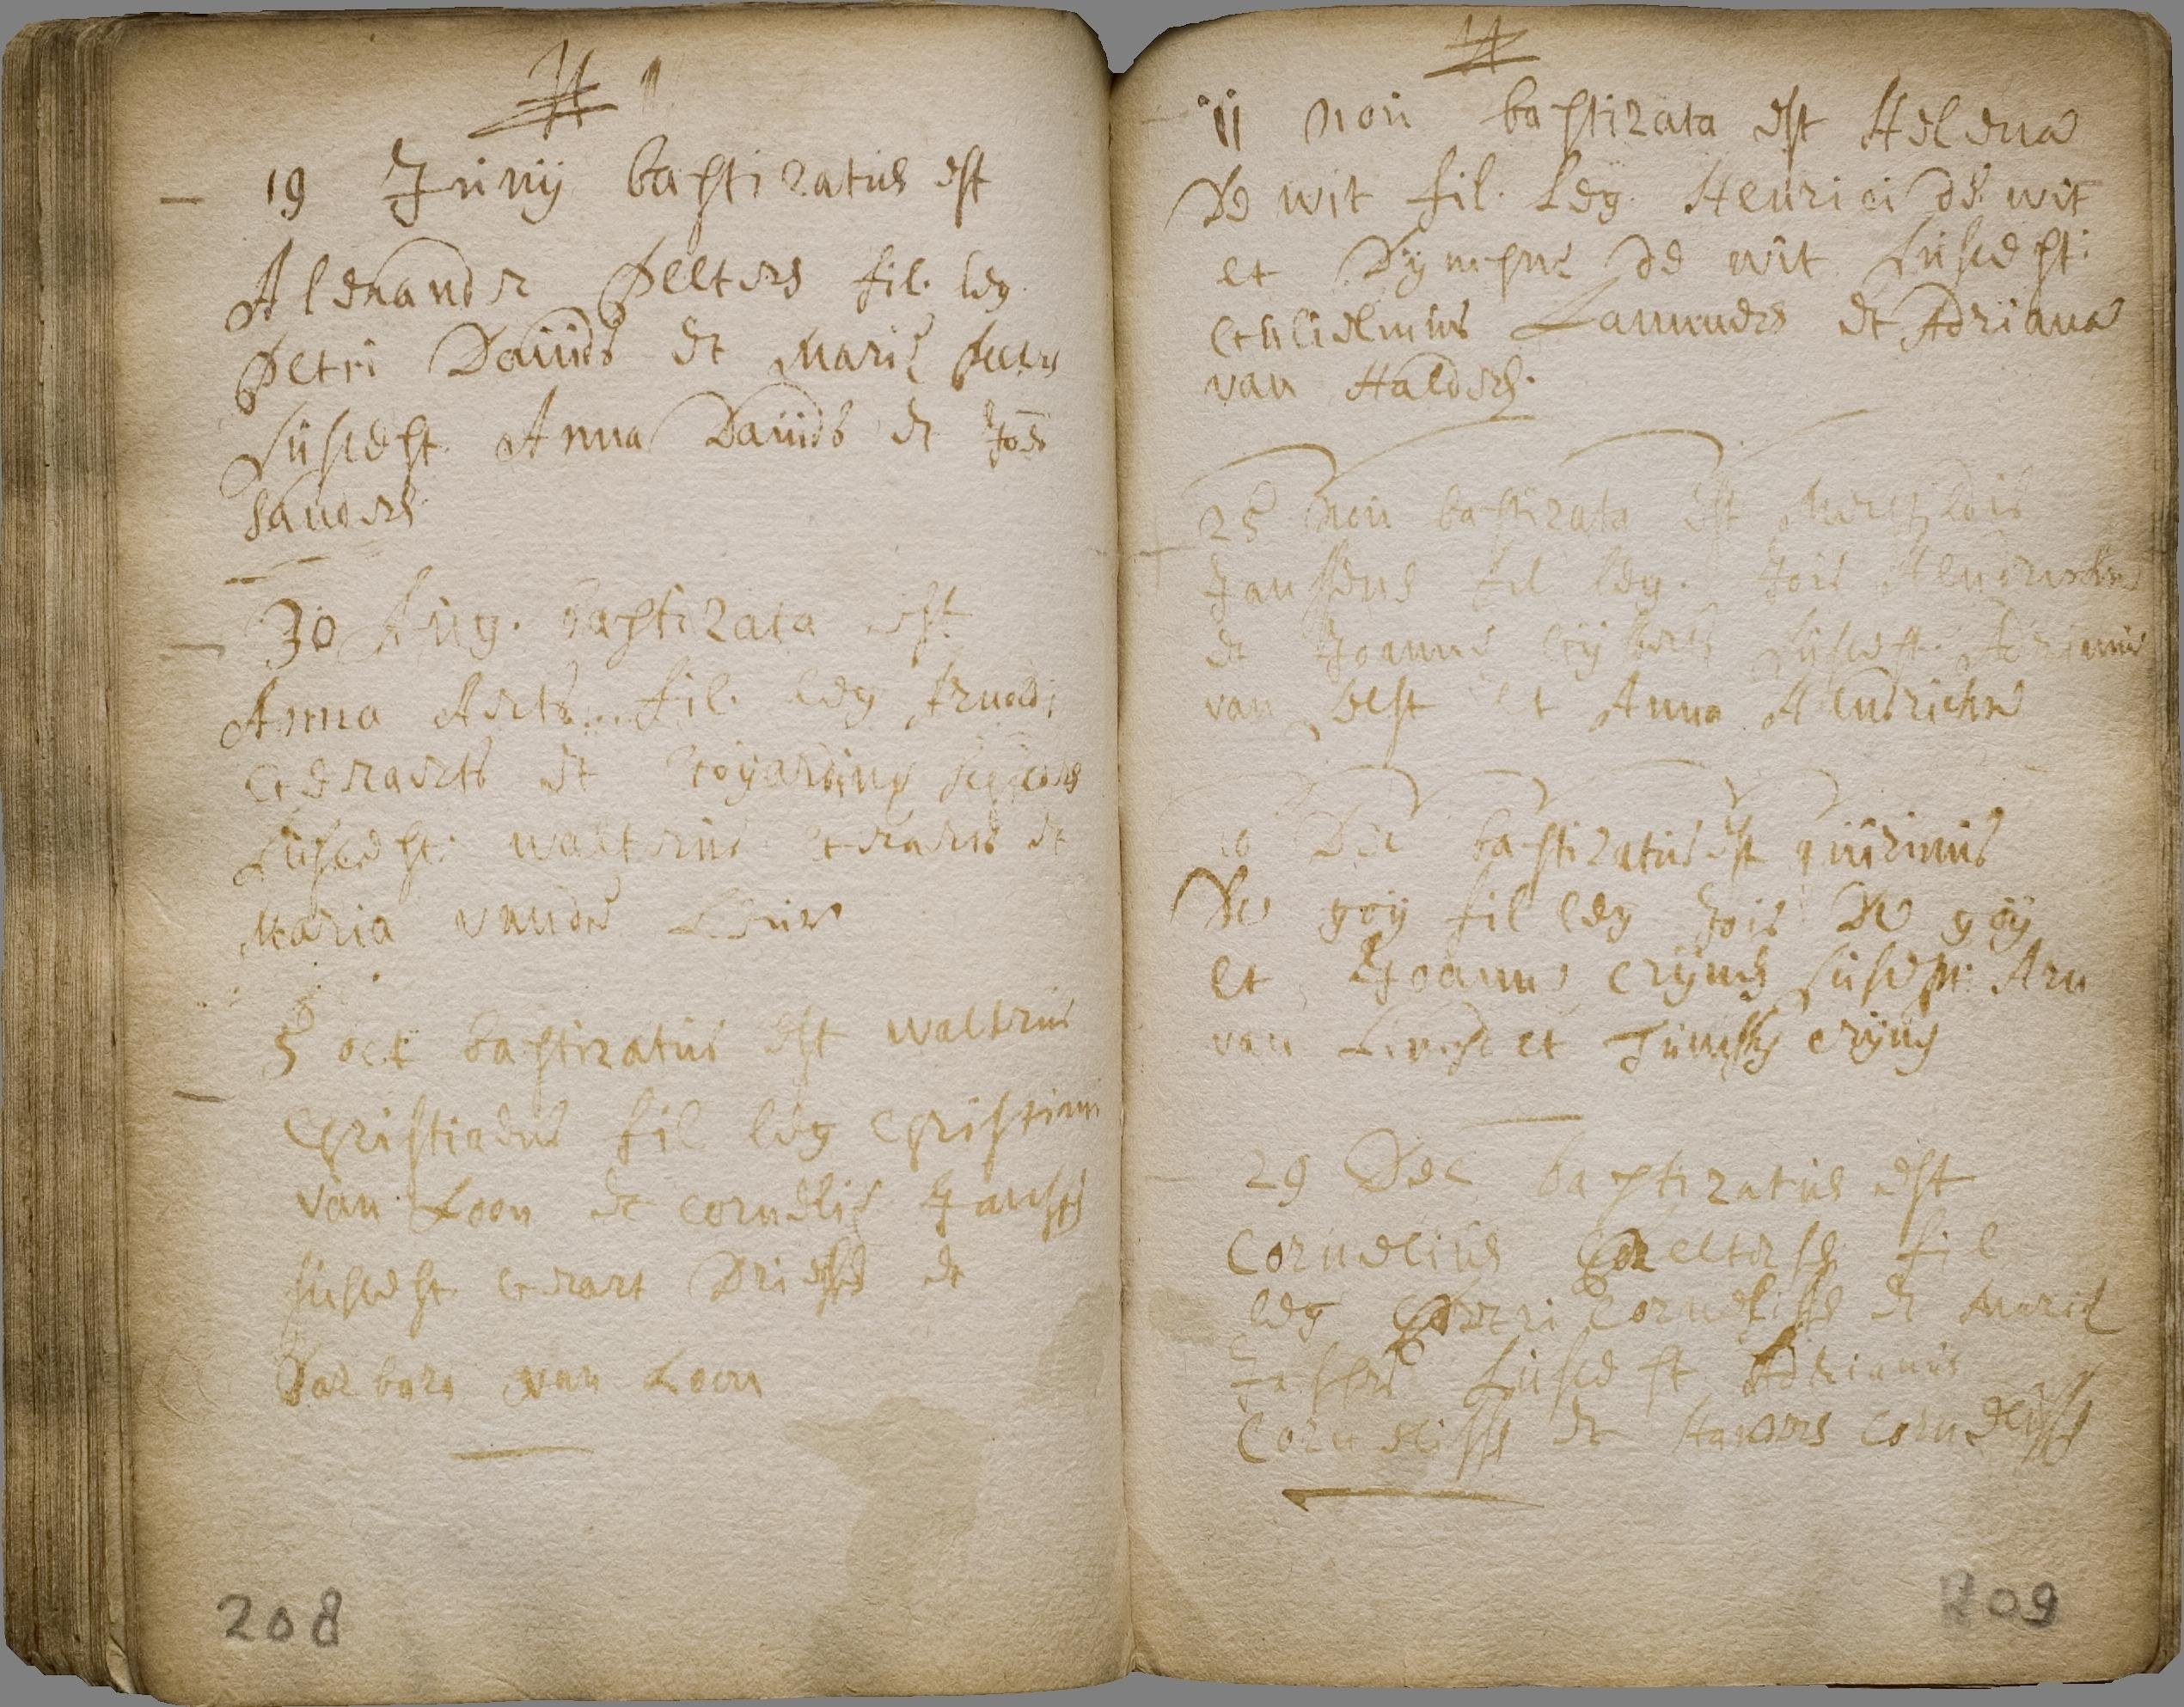 19 Junij baptizatus est
Alexander Peeters fil. leg.
Petri Dauids et Mariæ
Suscept. Anna Dauids et Joes
Sanders
30 Aug. baptizata est
Anna Aerts fil. leg Arnoldi
Geraerts et
Suscept: walterus Geraerts et
Maria vande
5 oct baptizatus est walterus
Christiaens fil leg Christiani
van Loon et corneliæ Jansse
suscept. Gerart Driesse et
Barbara van Loon
208
11 nou baptizata est Helena
De wit fil. leg. Henrici de wit
et Dympnæ de wit Suscept:
Guilielmus et Adriana
van
25 nou baptizata est
Janssens fil leg. Jois Hendrickx
et Joannæ Suscept. Adrianus
van Gelst et Anna Hendrickx
10 Dec baptizatus est quirinus
De goij fil leg Jois De goij
et Joannæ crijns suscept: Arn
van et crijns
29 Dec baptizatus est
Cornelius Peeterse fil
leg Petri Cornelisse et Mariæ
Suscept Adrianus
Cornelisse et cornelisse
209